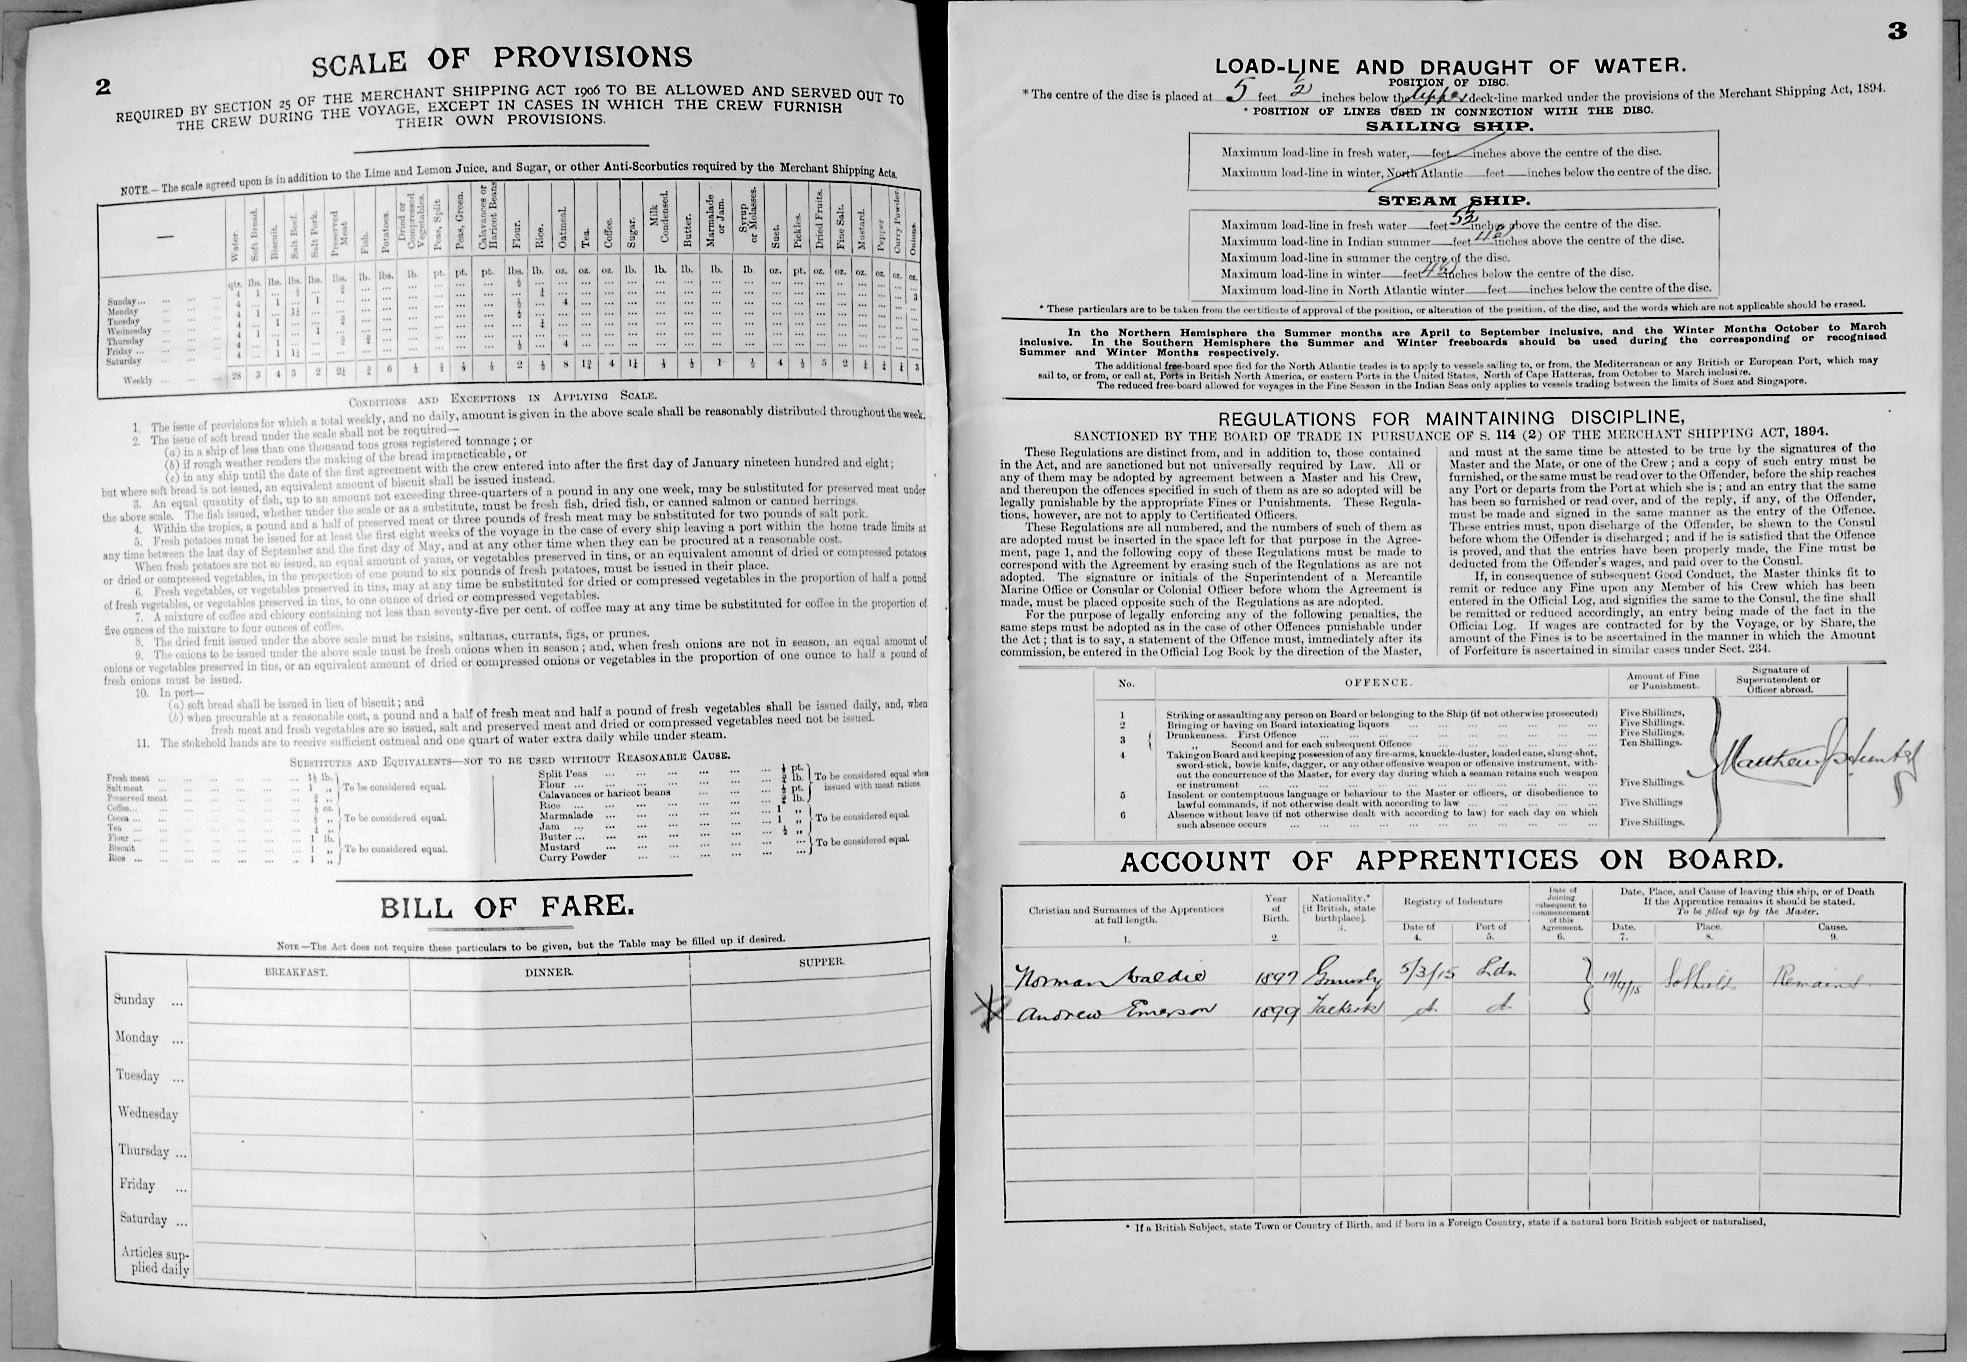 2
SCALE OF PROVISIONS
REQUIRED BY SECTION 25 OF THE MERCHANT SHIPPING ACT 1906 TO BE ALLOWED AND SERVED OUT TO
THE CREW DURING THE VOYAGE, EXCEPT IN CASES IN WHICH THE CREW FURNISH
THEIR OWN PROVISIONS.
NOTE.—The scale agreed upon is in addition to the Lime and Lemon Juice, and Sugar, or other Anti-Scorbutics required by the Merchant Shipping Acts.
— Water. Soft Bread. Biscuit. Salt Beef. Salt Pork. Preserved Meat Fish. Potatoes. Dried or Compressed Vegetables. Peas, Split Peas, Green. Calavances or Haricot Beans Flour. Rice. Oatmeal. Tea. Coffee. Sugar. Milk Condensed. Butter. Marmalade or Jam. Syrup or Molasses. Suet. Pickles. Dried Fruits. Fine Salt. Mustard. Pepper Curry Powder. Onions.
qts. lbs. lbs. lbs. lbs. lbs. lb. lbs. lb. pt. pt. pt. lbs. lb. oz. oz. oz. lb. lb. lb. lb. lb. oz. pt. oz. oz. oz. oz. oz. oz.
Sunday...
Monday
Tuesday
Wednesday
Thursday
Friday ...
Saturday
Weekly
CONDITIONS AND EXCEPTIONS IN APPLYING SCALE.
1. The issue of provisions for which a total weekly, and no daily, amount is given in the above scale shall be reasonably distributed throughout the week.
2. The issue of soft bread under the scale shall not be required—
(a) in a ship of less than one thousand tons gross registered tonnage ; or
(b) if rough weather renders the making of the bread impracticable , or
(c) in any ship until the date of the first agreement with the crew entered into after the first day of January nineteen hundred and eight ;
but where soft bread is not issued, an equivalent amount of biscuit shall be issued instead.
3. An equal quantity of fish, up to an amount not exceeding three-quarters of a pound in any one week, may be substituted for preserved meat under
the above scale. The fish issued, whether under the scale or as a substitute, must be fresh fish, dried fish, or canned salmon or canned herrings.
4. Within the tropics, a pound and a half of preserved meat or three pounds of fresh meat may be substituted for two pounds of salt pork.
5. Fresh potatoes must be issued for at least the first eight weeks of the voyage in the case of every ship leaving a port within the home trade limits at
any time between the last day of September and the first day of May, and at any other time when they can be procured at a reasonable cost.
When fresh potatoes are not so issued, an equal amount of yams, or vegetables preserved in tins, or an equivalent amount of dried or compressed potatoes
or dried or compressed vegetables, in the proportion of one pound to six pounds of fresh potatoes, must be issued in their place.
6. Fresh vegetables, or vegetables preserved in tins, may at any time be substituted for dried or compressed vegetables in the proportion of half a pound
of fresh vegetables, or vegetables preserved in tins, to one ounce of dried or compressed vegetables.
7. A mixture of coffee and chicory containing not less than seventy-five per cent. of coffee may at any time be substituted for coffee in the proportion of
five ounces of the mixture to four ounces of coffee.
8. The dried fruit issued under the above scale must be raisins, sultanas, currants, figs, or prunes.
9. The onions to be issued under the above scale must be fresh onions when in season ; and, when fresh onions are not in season, an equal amount of
onions or vegetables preserved in tins, or an equivalent amount of dried or compressed onions or vegetables in the proportion of one ounce to half a pound of
fresh onions must be issued.
10. In port—
(a) soft bread shall be issued in lieu of biscuit ; and
(b) when procurable at a reasonable cost, a pound and a half of fresh meat and half a pound of fresh vegetables shall be issued daily, and, when
fresh meat and fresh vegetables are so issued, salt and preserved meat and dried or compressed vegetables need not be issued.
11. The stokehold hands are to receive sufficient oatmeal and one quart of water extra daily while under steam.
SUBSTITUTES AND EQUIVALENTS—NOT TO BE USED WITHOUT REASONABLE CAUSE.
Fresh meat
Salt meat
Preserved meat
To be considered equal.
Coffee...
Cocoa ...
Tea ...
To be considered equal.
Flour ...
Biscuit
Rice ...
To be considered equal.
Split Peas
Flour ...
Calavances or haricot beans
Rice ...
To be considered equal when
issued with meat rations.
Marmalade
Jam ...
Butter ...
To be considered equal.
Mustard
Curry Powder
To be considered equal.
BILL OF FARE.
NOTE —The Act does not require these particulars to be given, but the Table may be filled up if desired.
BREAKFAST. DINNER. SUPPER.
Sunday ...
Monday ...
Tuesday ...
Wednesday
Thursday ...
Friday ...
Saturday ...
Articles sup-
plied daily
3
LOAD-LINE AND DRAUGHT OF WATER.
POSITION OF DISC.
* The centre of the disc is placed at 5 feet ½ inches below the upper deck-line marked under the provisions of the Merchant Shipping Act, 1894.
* POSITION OF LINES USED IN CONNECTION WITH THE DISC.
SAILING SHIP.
Maximum load-line in fresh water, feet inches above the centre of the disc.
Maximum load-line in winter, North Atlantic feet inches below the centre of the disc.
STEAM SHIP.
Maximum load-line in fresh water feet inches above the centre of the disc.
Maximum load-line in Indian summer feet inches above the centre of the disc.
Maximum load-line in summer the centre of the disc.
Maximum load-line in winter feet inches below the centre of the disc.
Maximum load-line in North Atlantic winter feet inches below the centre of the disc.
* These particulars are to be taken from the certificate of approval of the position, or alteration of the position, of the disc, and the words which are not applicable should be erased.
In the Northern Hemisphere the Summer months are April to September inclusive, and the Winter Months October to March
inclusive. In the Southern Hemisphere the Summer and Winter freeboards should be used during the corresponding or recognised
Summer and Winter Months respectively.
The additional free-board specified for the North Atlantic trades is to apply to vessels sailing to, or from, the Mediterranean or any British or European Port, which may
sail to, or from, or call at, Ports in British North America, or eastern Ports in the United States, North of Cape Hatteras, from October to March inclusive.
The reduced free-board allowed for voyages in the Fine Season in the Indian Seas only applies to vessels trading between the limits of Suez and Singapore.
REGULATIONS FOR MAINTAINING DISCIPLINE,
SANCTIONED BY THE BOARD OF TRADE IN PURSUANCE OF S. 114 (2) OF THE MERCHANT SHIPPING ACT, 1894.
These Regulations are distinct from, and in addition to, those contained
in the Act, and are sanctioned but not universally required by Law. All or
any of them may be adopted by agreement between a Master and his Crew,
and thereupon the offences specified in such of them as are so adopted will be
legally punishable by the appropriate Fines or Punishments. These Regula-
tions, however, are not to apply to Certificated Officers.
These Regulations are all numbered, and the numbers of such of them as
are adopted must be inserted in the space left for that purpose in the Agree-
ment, page 1, and the following copy of these Regulations must be made to
correspond with the Agreement by erasing such of the Regulations as are not
adopted. The signature or initials of the Superintendent of a Mercantile
Marine Office or Consular or Colonial Officer before whom the Agreement is
made, must be placed opposite such of the Regulations as are adopted.
For the purpose of legally enforcing any of the following penalties, the
same steps must be adopted as in the case of other Offences punishable under
the Act ; that is to say, a statement of the Offence must, immediately after its
commission, be entered in the Official Log Book by the direction of the Master,
and must at the same time be attested to be true by the signatures of the
Master and the Mate, or one of the Crew ; and a copy of such entry must be
furnished, or the same must be read over to the Offender, before the ship reaches
any Port or departs from the Port at which she is ; and an entry that the same
has been so furnished or read over, and of the reply, if any, of the Offender,
must be made and signed in the same manner as the entry of the Offence.
These entries must, upon discharge of the Offender, be shewn to the Consul
before whom the Offender is discharged ; and if he is satisfied that the Offence
is proved, and that the entries have been properly made, the Fine must be
deducted from the Offender's wages, and paid over to the Consul.
If, in consequence of subsequent Good Conduct, the Master thinks fit to
remit or reduce any Fine upon any Member of his Crew which has been
entered in the Official Log, and signifies the same to the Consul, the fine shall
be remitted or reduced accordingly, an entry being made of the fact in the
Official Log. If wages are contracted for by the Voyage, or by Share, the
amount of the Fines is to be ascertained in the manner in which the Amount
of Forfeiture is ascertained in similar cases under Sect. 234.
No. OFFENCE. Amount of Fine or Punishment. Signature of Superintendent or Officer abroad.
1 Striking or assaulting any person on Board or belonging to the Ship (if not otherwise prosecuted) Five Shillings.
2 Bringing or having on Board intoxicating liquors Five Shillings.
3 Drunkenness. First Offence Five Shillings.
„ Second and for each subsequent Offence Ten Shillings.
4 Taking on Board and keeping possession of any fire-arms, knuckle-duster, loaded cane, slung-shot,
sword-stick, bowie knife, dagger, or any other offensive weapon or offensive instrument, with-
out the concurrence of the Master, for every day during which a seaman retains such weapon
or instrument Five Shillings.
5 Insolent or contemptuous language or behaviour to the Master or officers, or disobedience to
lawful commands, if not otherwise dealt with according to law Five Shillings
6 Absence without leave (if not otherwise dealt with according to law) for each day on which
such absence occurs Five Shillings.
Matthew
ACCOUNT OF APPRENTICES ON BOARD.
Christian and Surnames of the Apprentices at full length. Year of Birth. Nationality.* [if British, state birthplace]. Registry of Indenture Date of Joining subsequent to commencement of this Agreement. Date, Place, and Cause of leaving this ship, or of Death
If the Apprentice remains it should be stated.
To be filled up by the Master.
Date of Port of Date. Place. Cause.
1. 2. 3. 4. 5. 6. 7. 8. 9.
Norman Waldie 1897 Grimsby 5/3/15 Ldn Remains
Andrew Emerson 1899
* If a British Subject, state Town or Country of Birth, and if born in a Foreign Country, state if a natural born British subject or naturalised,